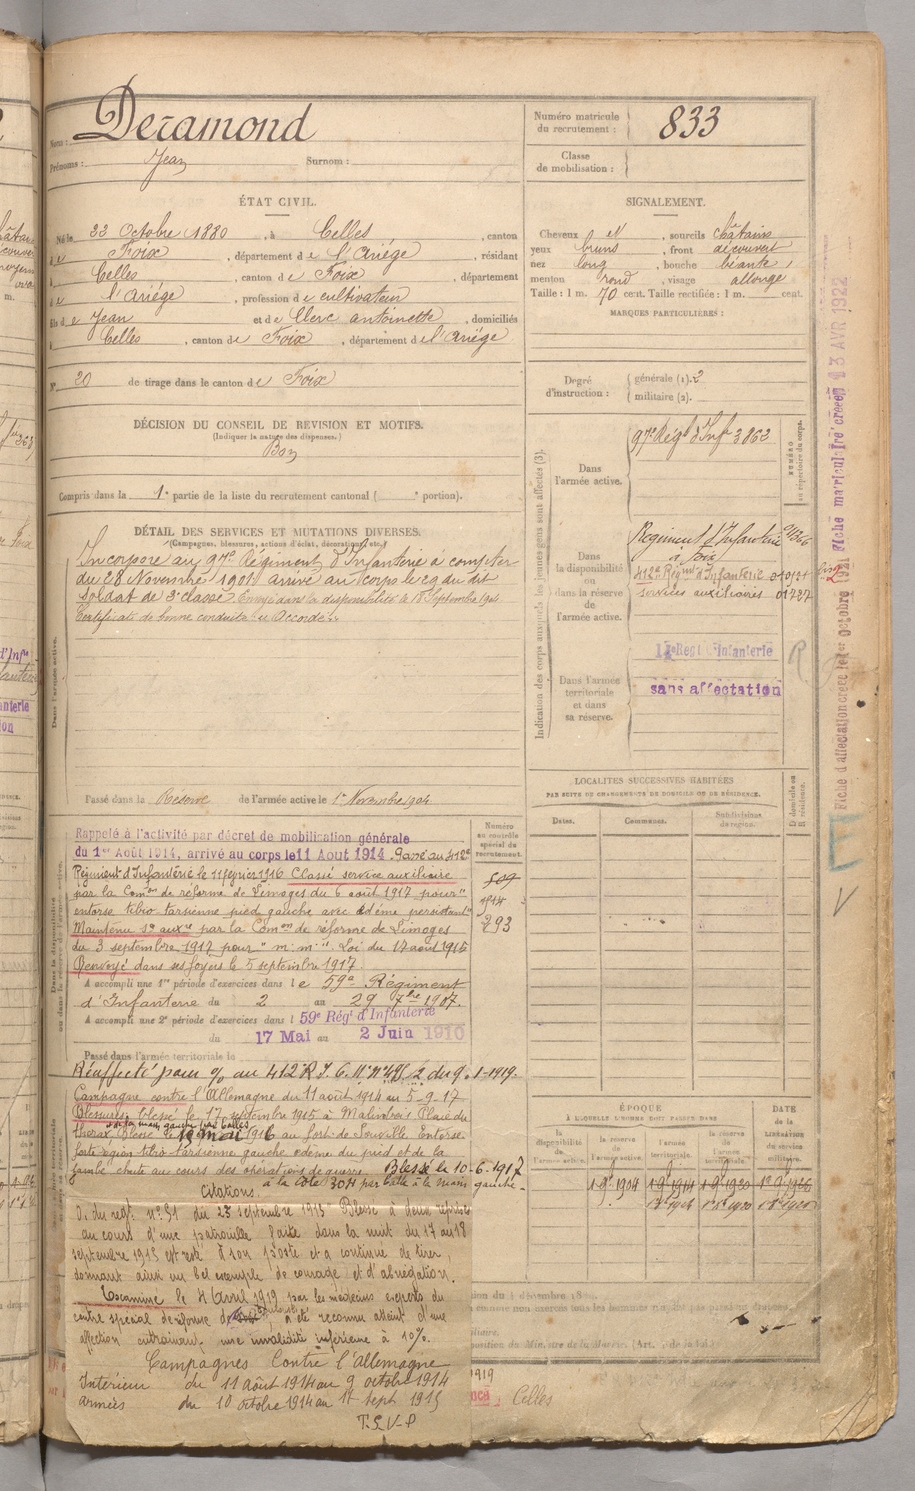 Nom : Deramond
Prénoms : Jean Surnom :
Numéro matricule du recrutement : 833
Classe de mobilisation :
ÉTAT CIVIL.
Né le 22 Octobre 1880, à Celles, canton
de Foix, département de l'Ariége, résidant
à Celles, canton de Foix, département
de l'Ariége, profession de cultivateur
fils de Jean et de Clerc antoinette, domiciliés
à Celles, canton de Foix, département de l'Ariége
N° 20 de tirage dans le canton de Foix
SIGNALEMENT.
Cheveux et, sourcils châtains
yeux bruns, front découvert
nez long, bouche béante,
menton rond, visage allongé
Taille : 1 m. 70 cent. Taille rectifiée : 1 m. cent.
MARQUES PARTICULIÈRES :
DÉCISION DU CONSEIL DE REVISION ET MOTIFS.
(Indiquer la nature des dispenses.)
Bon
Compris dans la 1e partie de la liste du recrutement cantonal ( e portion).
Degré d'instruction : générale (1). 2
militaire (2).
DÉTAIL DES SERVICES ET MUTATIONS DIVERSES.
(Campagnes, blessures, actions d'éclat, décorations, etc.)
Incorporé au 97e Régiment d'Infanterie à compter
du 28 Novembre 1901 arrivé au corps le 29 du dit
Soldat de 2e classe. Envoyé dans la disponibilité le 18 Septembre 1904
Certificat de bonne conduite "Accordé"
Passé dans la Réserve de l'armée active le 1er Novembre 1904
Indication des corps auxquels les jeunes gens sont affectés (3).
Dans l'armée active.
97e Régt d'Infie 3862
NUMÉRO au répertoire du corps.
Dans la disponibilité ou dans la réserve de l'armée active.
Régiment d'Infanterie
à Foix
412e Régint d'Infanterie 01921
services auxiliaires 01727
Dans l'armée territoriale et dans sa réserve.
Regt d'Infanterie
sans affectation
Fiche d'affectation créée le 1er octobre 1921 Fiche matriculaire créée 13 AVR 1922
LOCALITÉS SUCCESSIVES HABITÉES
PAR SUITE DE CHANGEMENTS DE DOMICILE OU DE RÉSIDENCE.
Dates. Communes. Subdivisions de région. D domicile ou R résidence.
Rappelé à l'activité par décret de mobilisation générale
du 1er Août 1914, arrivé au corps le 11 Aout 1914. Passé au 412e
Régiment d'Infanterie le 11 février 1916 Classé service auxiliaire
par la Comon de réforme de Limoges du 6 août 1917 pour "
entorse tibio tarsienne pied gauche avec œdéme persistant"
Maintenu Se auxre par la Comon de réforme de Limoges
du 3 septembre 1917 pour "m. m." Loi du 17 août 1915
Renvoyé dans ses foyers le 5 septembre 1917
Numéro au contrôle spécial du recrutement.
509
1914
293
A accompli une 1re période d'exercices dans le 59e Régiment
d'Infanterie du 2 au 29 7bre 1907.
A accompli une 2e période d'exercices dans l 59e Régt d'Infanterie
du 17 Mai au 2 Juin 1910
Passé dans l'armée territoriale le
Réaffecté pour % au 412e R.I. du 9.1-1919.
Campagne contre l'Allemagne du 11 août 1914 au 5-9-17
Blessures : blessé le 17 septembre 1915 à Malimbois Plaie du
thorax et de la main gauche par balles. Blessé le mai 1916 au fort de Souville Entorse
forte région tibio tarsienne gauche œdème du pied et de la
jambe chute au cours des opérations de guerre. Blessé le 10-6-1917
à la côte 304 par balle à la main gauche.
Citations.
O. du regt. n° 51 du 23 septembre 1915 Blessé à deux reprises
au cours d'une patrouille faite dans la nuit du 17 au 18
septembre 1915 est resté à son poste et a continué de tirer,
donnant ainsi un bel exemple de courage et d'abnégation.
Examiné le 4 Avril 1919 par les médecins experts du
centre spécial de réforme a été reconnu atteint d'une
affection entrainant une invalidité inférieure à 10%.
Campagnes Contre l'Allemagne
Intérieur du 11 Août 1914 au 9 octobre 1914
armées du 10 octobre 1914 au 17 sept 1915
T.S.V.P
ÉPOQUE
À LAQUELLE L'HOMME DOIT PASSER DANS
la disponibilité de l'armée active. la réserve de l'armée active. l'armée territoriale. la réserve de l'armée territoriale.
DATE de la LIBÉRATION du service militaire.
1-9-1904
Celles